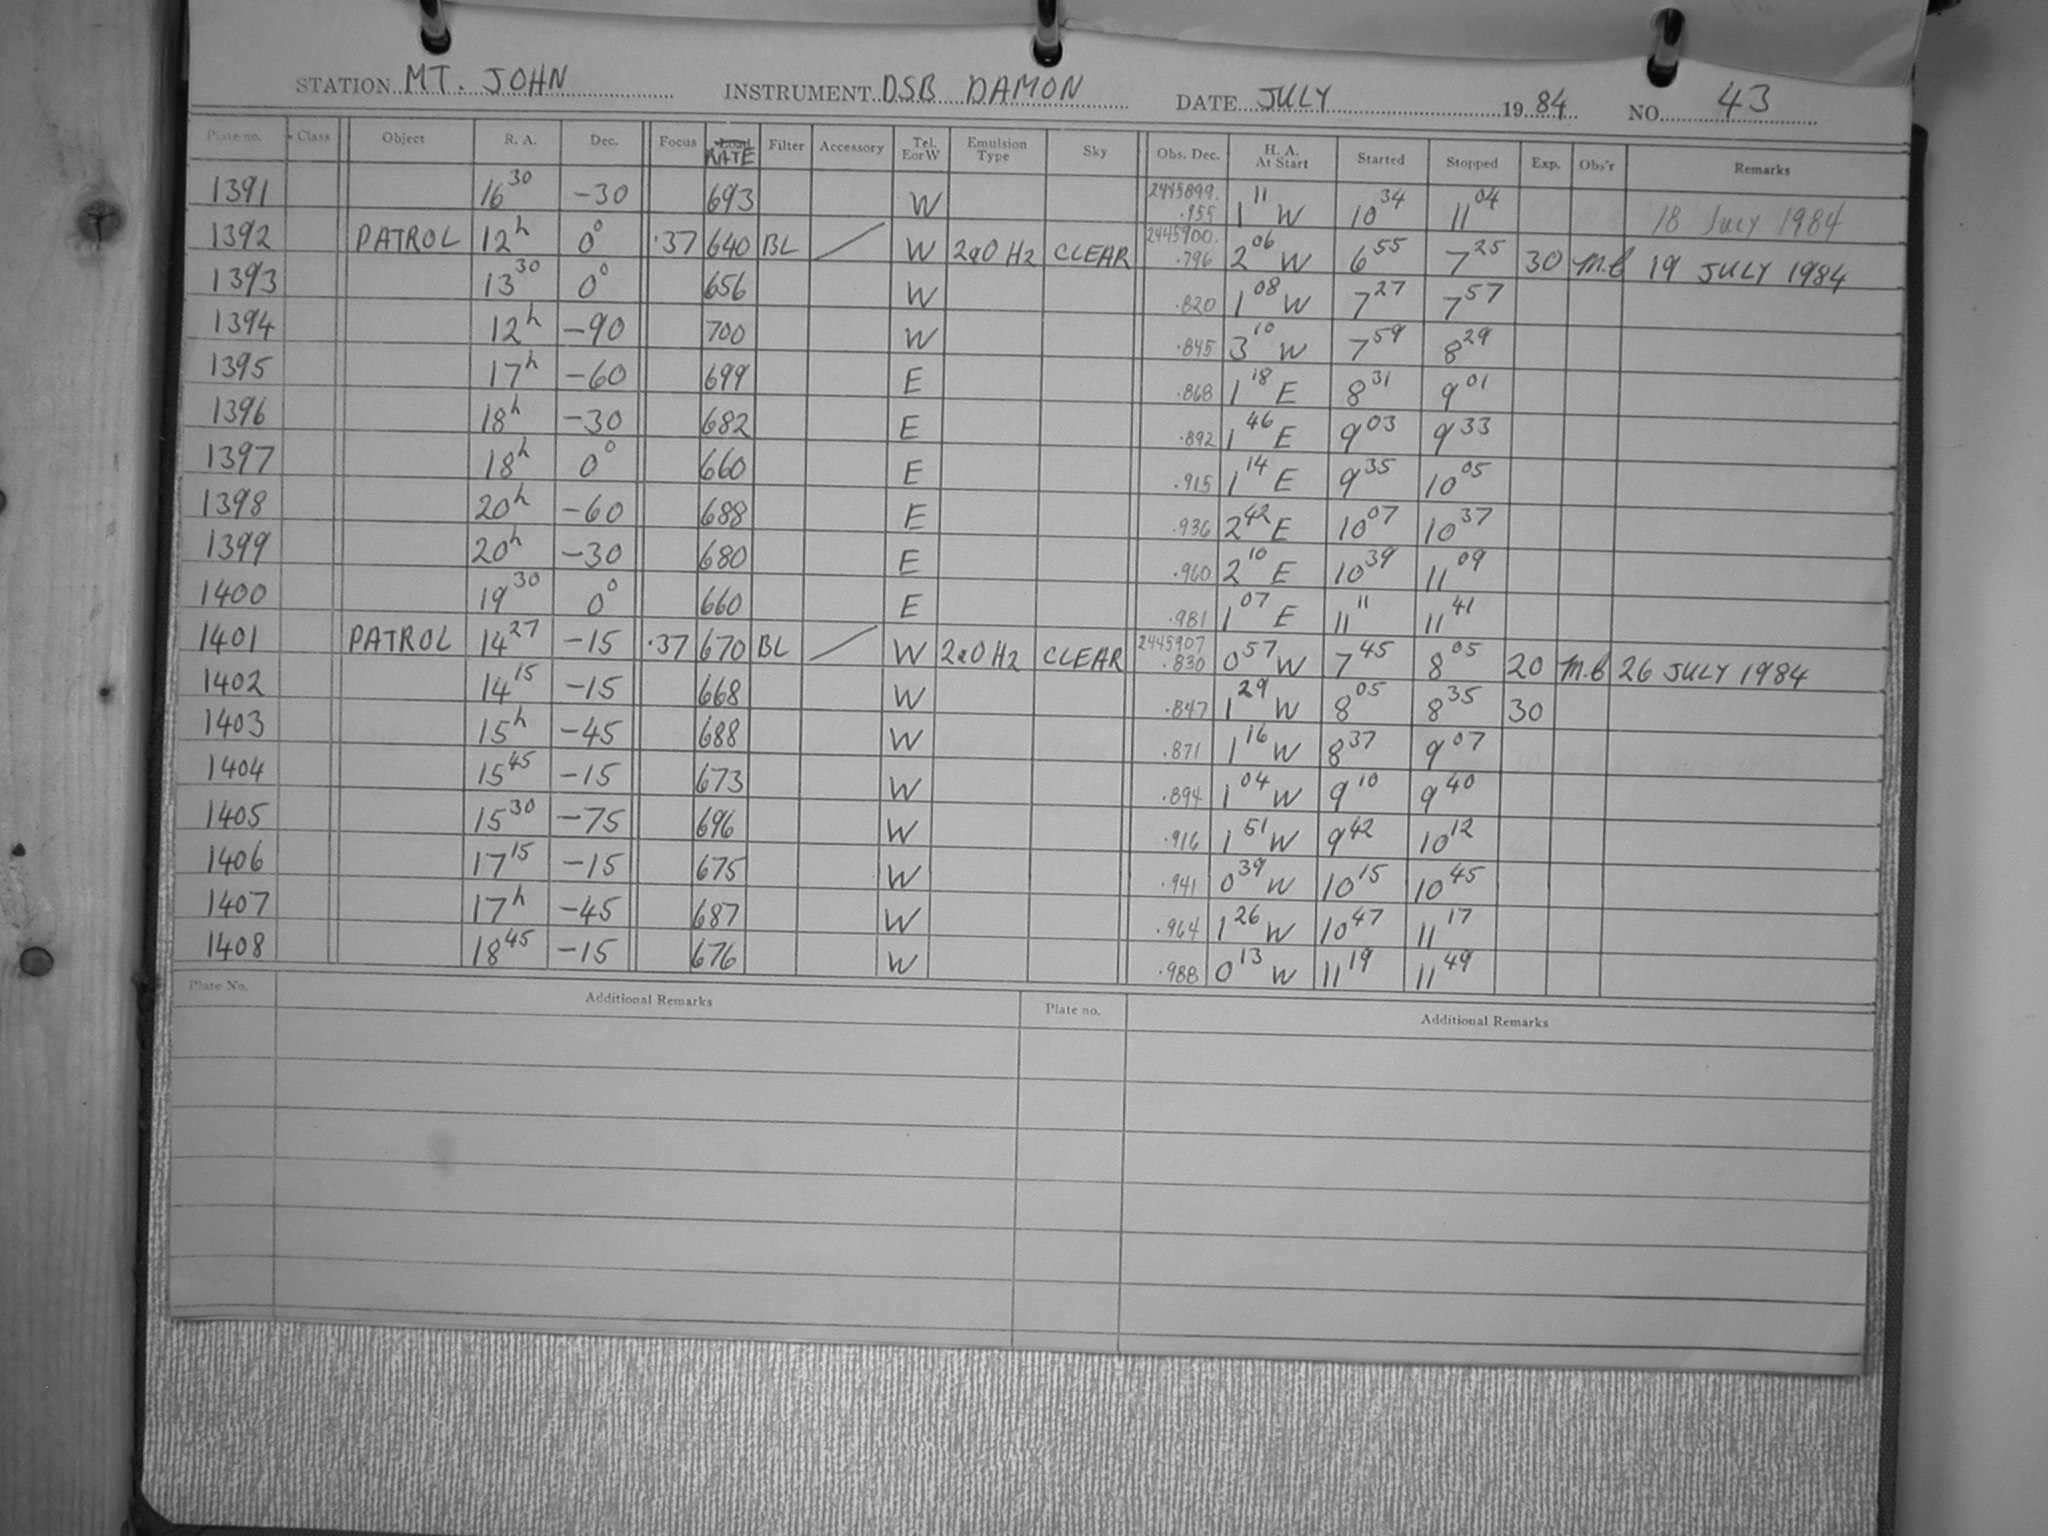 STATION MT. JOHN INSTRUMENT DSB DAMON DATE JULY 1984 NO. 43
Plate no. Class Object R. A. Dec. Focus RATE Filter Accessory Tel. EorW Emulsion Type Sky Obs. Dec. H. A. At Start Started Stopped Exp. Obs'r Remarks
1391 16 30 -30 693 W 2445899. .955 1 11 W 10 34 11 04 18 July 1984
1392 PATROL 12h 0° .37 640 BL / W 2aO H2 CLEAR 2445900. .796 2 06 W 6 55 7 25 30 M.C 19 JULY 1984
1393 13 30 0° 656 W .820 1 08 W 7 27 7 57
1394 12h -90 700 W .845 3 10 W 7 59 8 29
1395 17h -60 699 E .868 1 18 E 8 31 9 01
1396 18h -30 682 E .892 1 46 E 9 03 9 33
1397 18h 0° 660 E .915 1 14 E 9 35 10 05
1398 20h -60 688 E .936 2 42 E 10 07 10 37
1399 20h -30 680 E .960 2 10 E 10 39 11 09
1400 19 30 0° 660 E .981 1 07 E 11 11 11 41
1401 PATROL 14 27 -15 .37 670 BL / W 2aO H2 CLEAR 2445907 .830 0 57 W 7 45 8 05 20 M.C 26 JULY 1984
1402 14 15 -15 668 W .847 1 29 W 8 05 8 35 30
1403 15h -45 688 W .871 1 16 W 8 37 9 07
1404 15 45 -15 673 W .894 1 04 W 9 10 9 40
1405 15 30 -75 696 W .916 1 51 W 9 42 10 12
1406 17 15 -15 675 W .941 0 39 W 10 15 10 45
1407 17h -45 687 W .964 1 26 W 10 47 11 17
1408 18 45 -15 676 W .988 0 13 W 11 19 11 49
Plate No. Additional Remarks Plate no. Additional Remarks